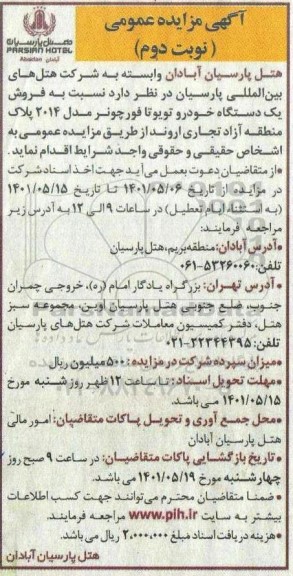 آگهی مزایده عمومی
( نوبت دوم )
هتل پارسیان
PARSIAN HOTEL
آبادان Abadan
هتل پارسیان آبادان وابسته به شرکت هتل‌های
بین‌المللی پارسیان در نظر دارد نسبت به فروش
یک دستگاه خودرو تویوتا فورچونر مدل ۲۰۱۴ پلاک
منطقه آزاد تجاری اروند از طریق مزایده عمومی به
اشخاص حقیقی و حقوقی واجد شرایط اقدام نماید.
•از متقاضیان دعوت بعمل می‌آید جهت اخذ اسناد شرکت
در مزایده، از تاریخ ۱۴۰۱/۰۵/۰۶ تا تاریخ ۱۴۰۱/۰۵/۱۵
(به استثناء ایام تعطیل) در ساعات ۹ الی ۱۲ به آدرس زیر
مراجعه فرمایند:
•آدرس آبادان: منطقه بریم، هتل پارسیان
تلفن: ۵۳۲۶۰۰۶۰-۰۶۱
•آدرس تهران: بزرگراه یادگار امام (ره)، خروجی چمران
جنوب، ضلع جنوبی هتل پارسیان اوین، مجموعه سبز
هتل، دفتر کمیسیون معاملات شرکت هتل‌های پارسیان
تلفن: ۲۲۳۴۴۳۹۵-۰۲۱
•میزان سپرده شرکت در مزایده: ۵۰۰ میلیون ریال
•مهلت تحویل اسناد: تا ساعت ۱۲ ظهر روز شنبه مورخ
۱۴۰۱/۰۵/۱۵ می‌باشد.
•محل جمع آوری و تحویل پاکات متقاضیان: امور مالی
هتل پارسیان آبادان
•تاریخ بازگشایی پاکات متقاضیان: در ساعت ۹ صبح روز
چهارشنبه مورخ ۱۴۰۱/۰۵/۱۹ می باشد.
• ضمنا متقاضیان محترم می‌توانند جهت کسب اطلاعات
بیشتر به سایت www.pih.ir مراجعه فرمایند.
•هزینه دریافت اسناد مبلغ ۲,۰۰۰,۰۰۰ ریال می‌باشد.
هتل پارسیان آبادان